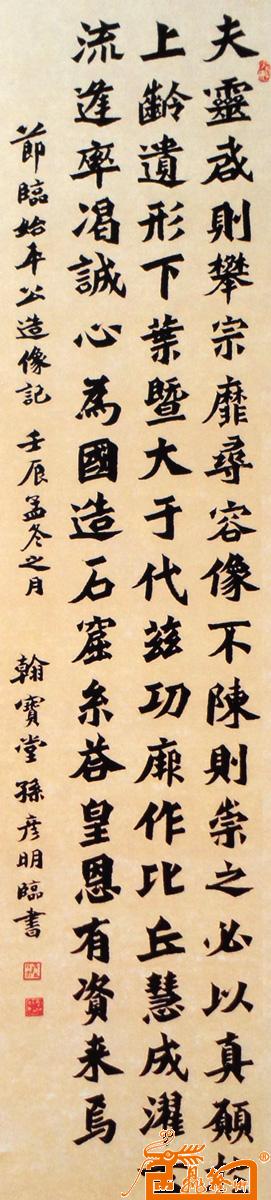 夫靈启則攀宗靡尋容像不陳則崇之必以真顔
上齡遺形下葉暨大于代茲功厥作比丘慧成濯
流逢率渴誠心為國造石窟糸荅皇恩有資来烏
節臨始平公造像記 壬辰孟冬之月 翰寶堂孫彦明臨書